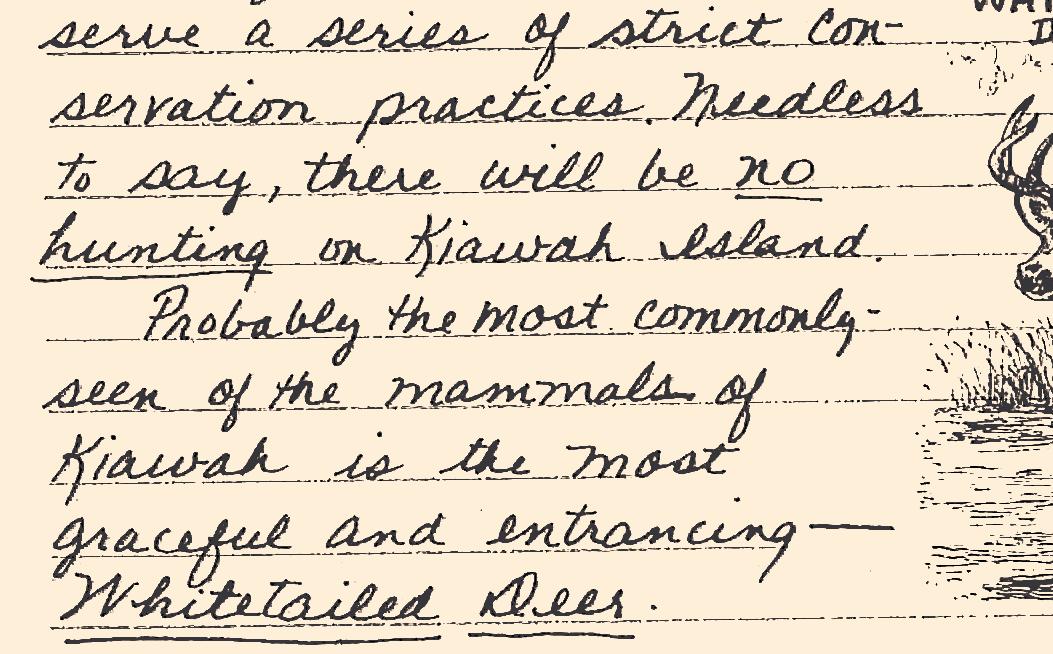 serve a series of strict con-
servation practices. Needless
to say, there will be no
hunting on Kiawah Island.
Probably the most commonly-
seen of the mammals of
Kiawah is the most
graceful and entrancing—
Whitetailed Deer.